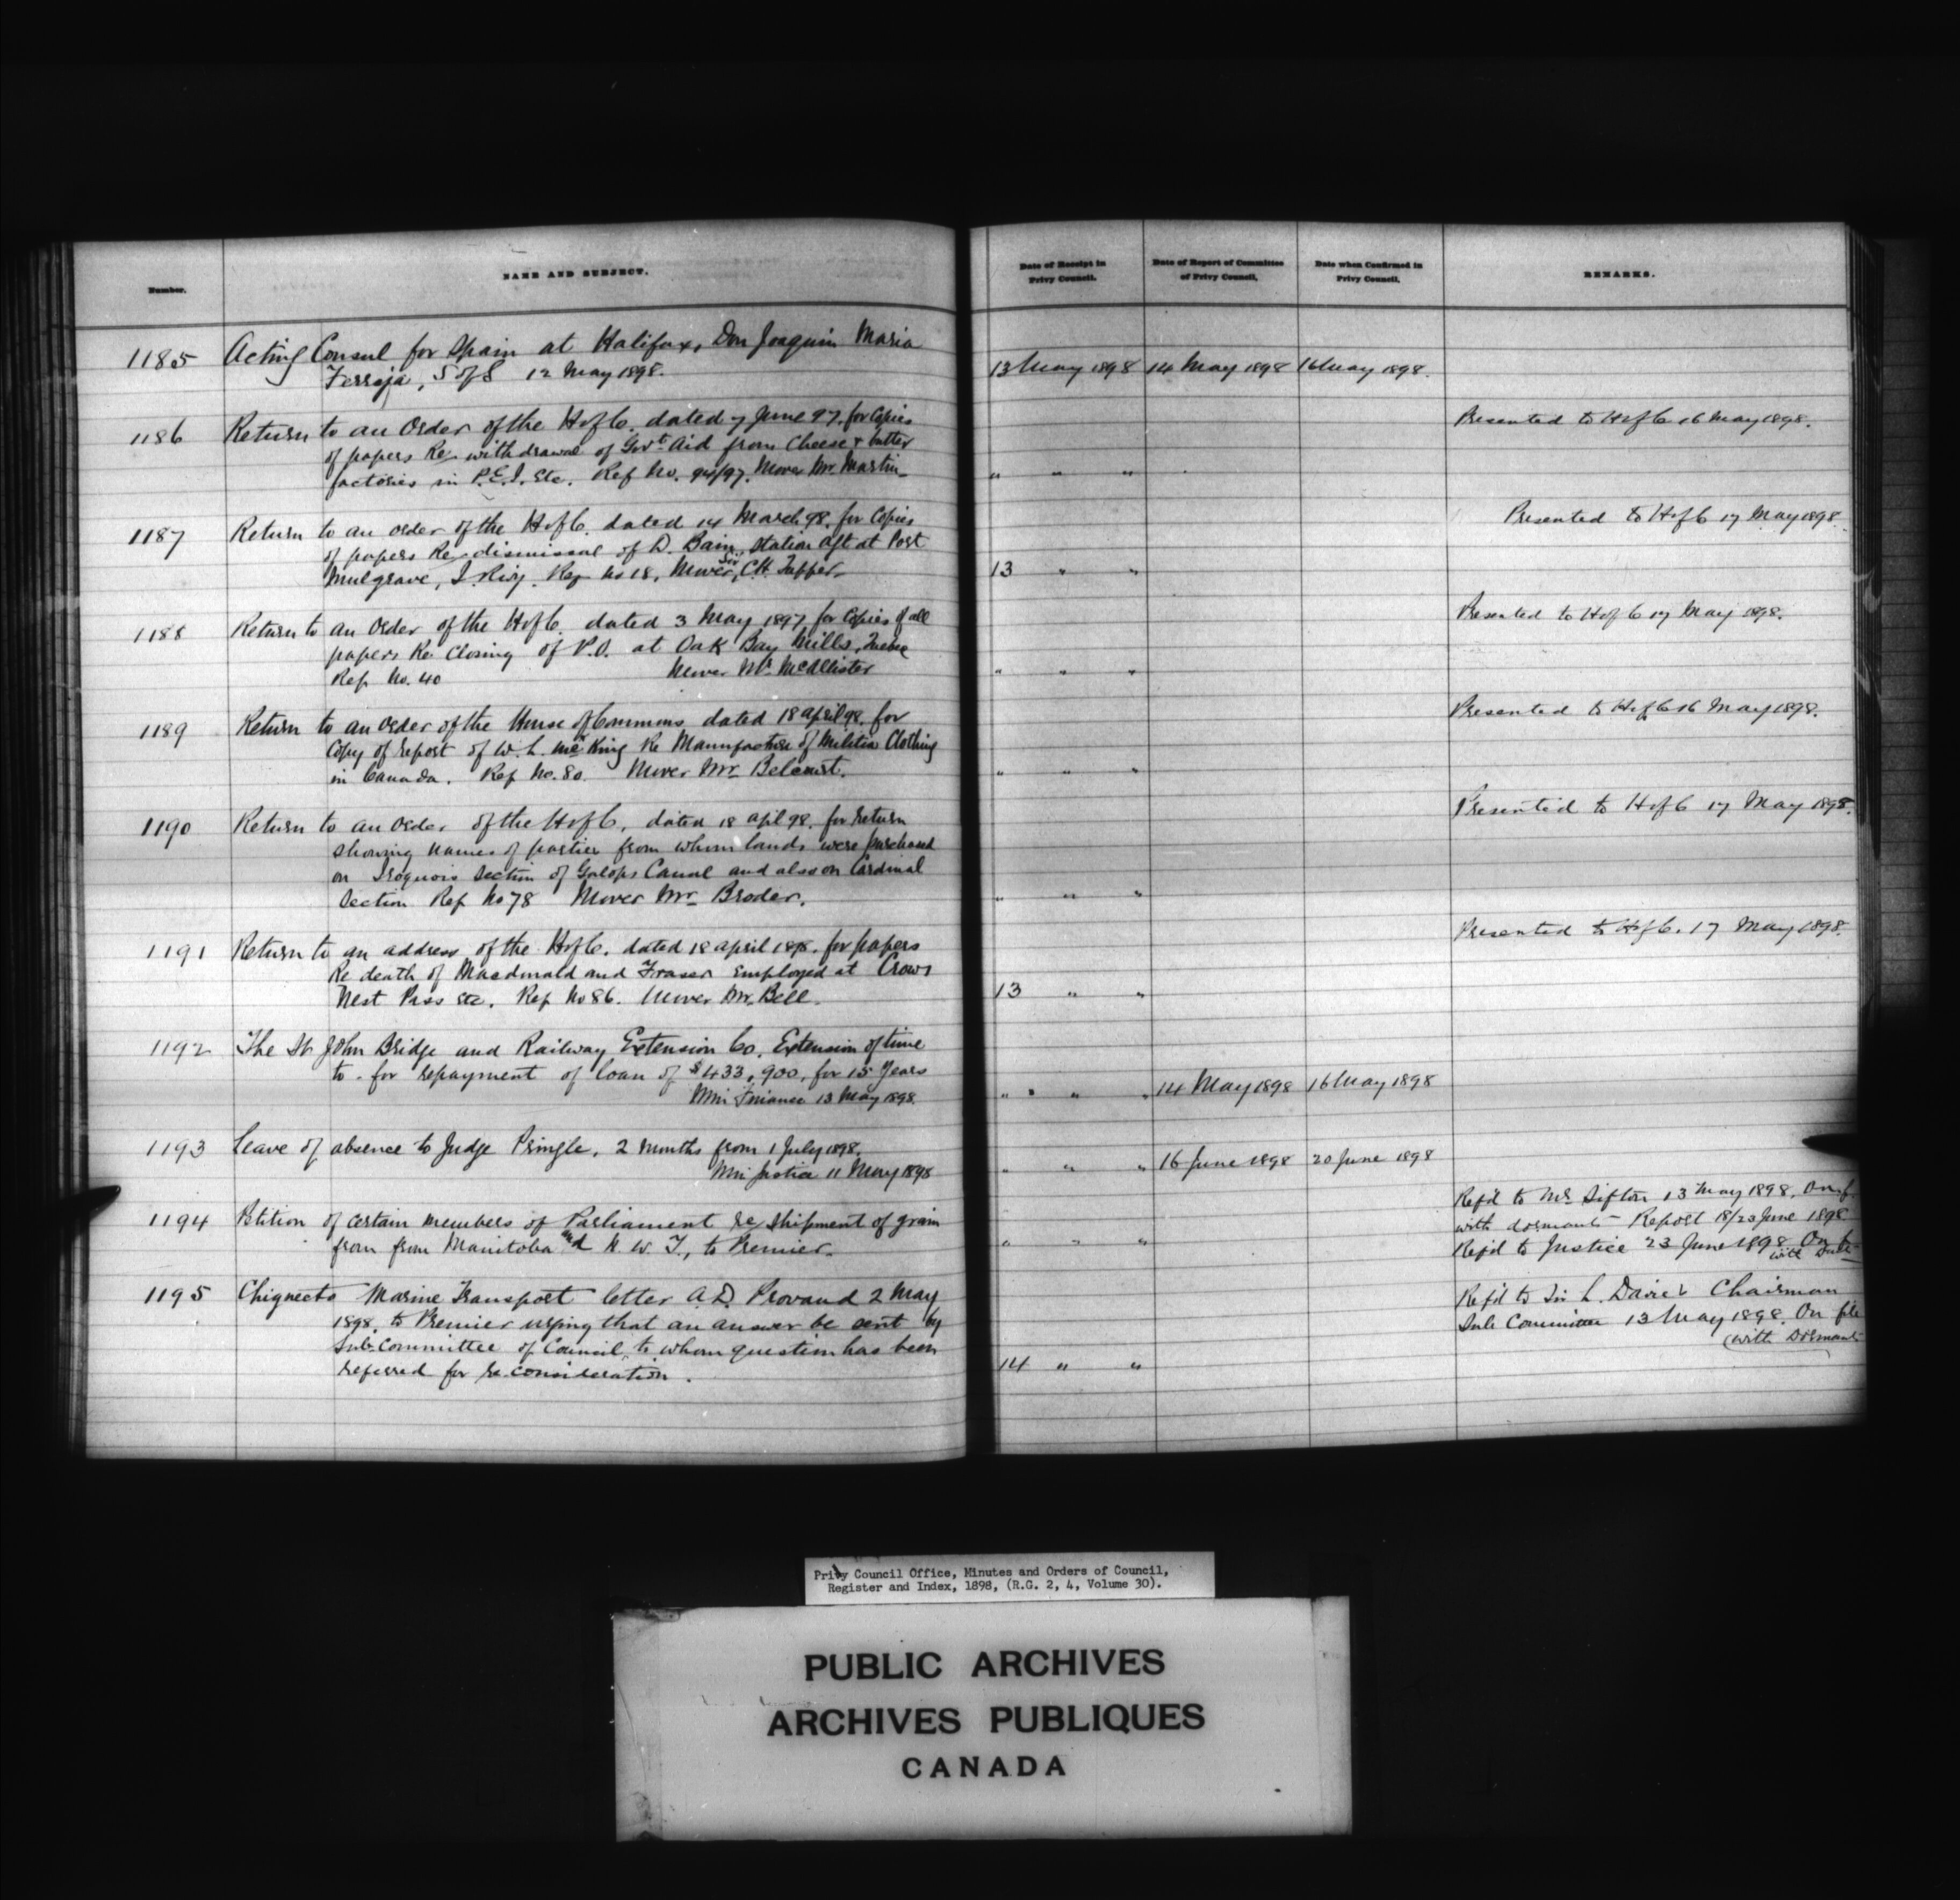 Number.
NAME AND SUBJECT.
Date of Receipt in Privy Council.
Date of Report of Committee of Privy Council.
Date when Confirmed in Privy Council.
REMARKS.
1185 Acting Consul for Spain at Halifax, Don Joaquin Maria
Ferraja, S of S 12 May 1898.
13 May 1898 14 May 1898 16 May 1898.
1186 Return to an Order of the H of C. dated 7 June 97, for Copies
of papers Re withdrawal of Govt. Aid from Cheese & butter
factories in P.E.I. etc. Ref No. 94/97. Mover Mr. Martin
" " "
Presented to H of C 16 May 1898.
1187 Return to an order of the H of C. dated 14 March 98, for Copies
of papers Re dismissal of D. Bain, Station Agt at Port
Mulgrave, I. Rwy. Ref No 18, Mover, Sir C.H. Tupper
13 " "
Presented to H of C 17 May 1898.
1188 Return to an Order of the H of C. dated 3 May 1897 for Copies of all
papers Re Closing of P.O. at Oak Bay Mills, Quebec
Ref No. 40 Mover Mr. McAllister
" " "
Presented to H of C 17 May 1898.
1189 Return to an order of the House of Commons dated 18 April 98. for
Copy of report of W. L. McKing Re Manufacture of Militia Clothing
in Canada. Ref No. 80. Mover Mr Belcourt.
" " "
Presented to H of C 16 May 1898.
1190 Return to an Order of the H of C. dated 18 Apl 98. for return
showing names of parties from whom lands were purchased
on Iroquois Section of Galops Canal and also on Cardinal
Section Ref No 78 Mover Mr Broder.
" " "
Presented to H of C 17 May 1898.
1191 Return to an address of the H of C. dated 18 April 1898. for papers
Re death of Macdonald and Fraser employed at Crows
Nest Pass etc. Ref No 86. Mover Mr. Bell.
13 " "
Presented to H of C. 17 May 1898.
1192 The St John Bridge and Railway Extension Co. Extension of time
to - for repayment of loan of $433,900, for 15 Years
Min Finance 13 May 1898.
" " " 14 May 1898 16 May 1898
1193 Leave of absence to Judge Pringle. 2 months from 1 July 1898.
Min Justice 11 May 1898
" " " 16 June 1898 20 June 1898
1194 Petition of certain members of Parliament re Shipment of grain
from from Manitoba and N. W. T., to Premier.
" " "
Refd to Mr Sifton 13 May 1898. On f
with dormants Report 18/23 June 1898
Refd to Justice 23 June 1898 On f
with
1195 Chignecto Marine Transport letter A.D. Provand 2 May
1898 to Premier urging that an answer be sent by
Sub-Committee of Council, to whom question has been
referred for re-consideration.
14 " "
Refd to Sir L. Davies Chairman
Sub Committee 13 May 1898. On file
(with Dormant
Privy Council Office, Minutes and Orders of Council,
Register and Index, 1898, (R.G. 2, 4, Volume 30).
PUBLIC ARCHIVES
ARCHIVES PUBLIQUES
CANADA